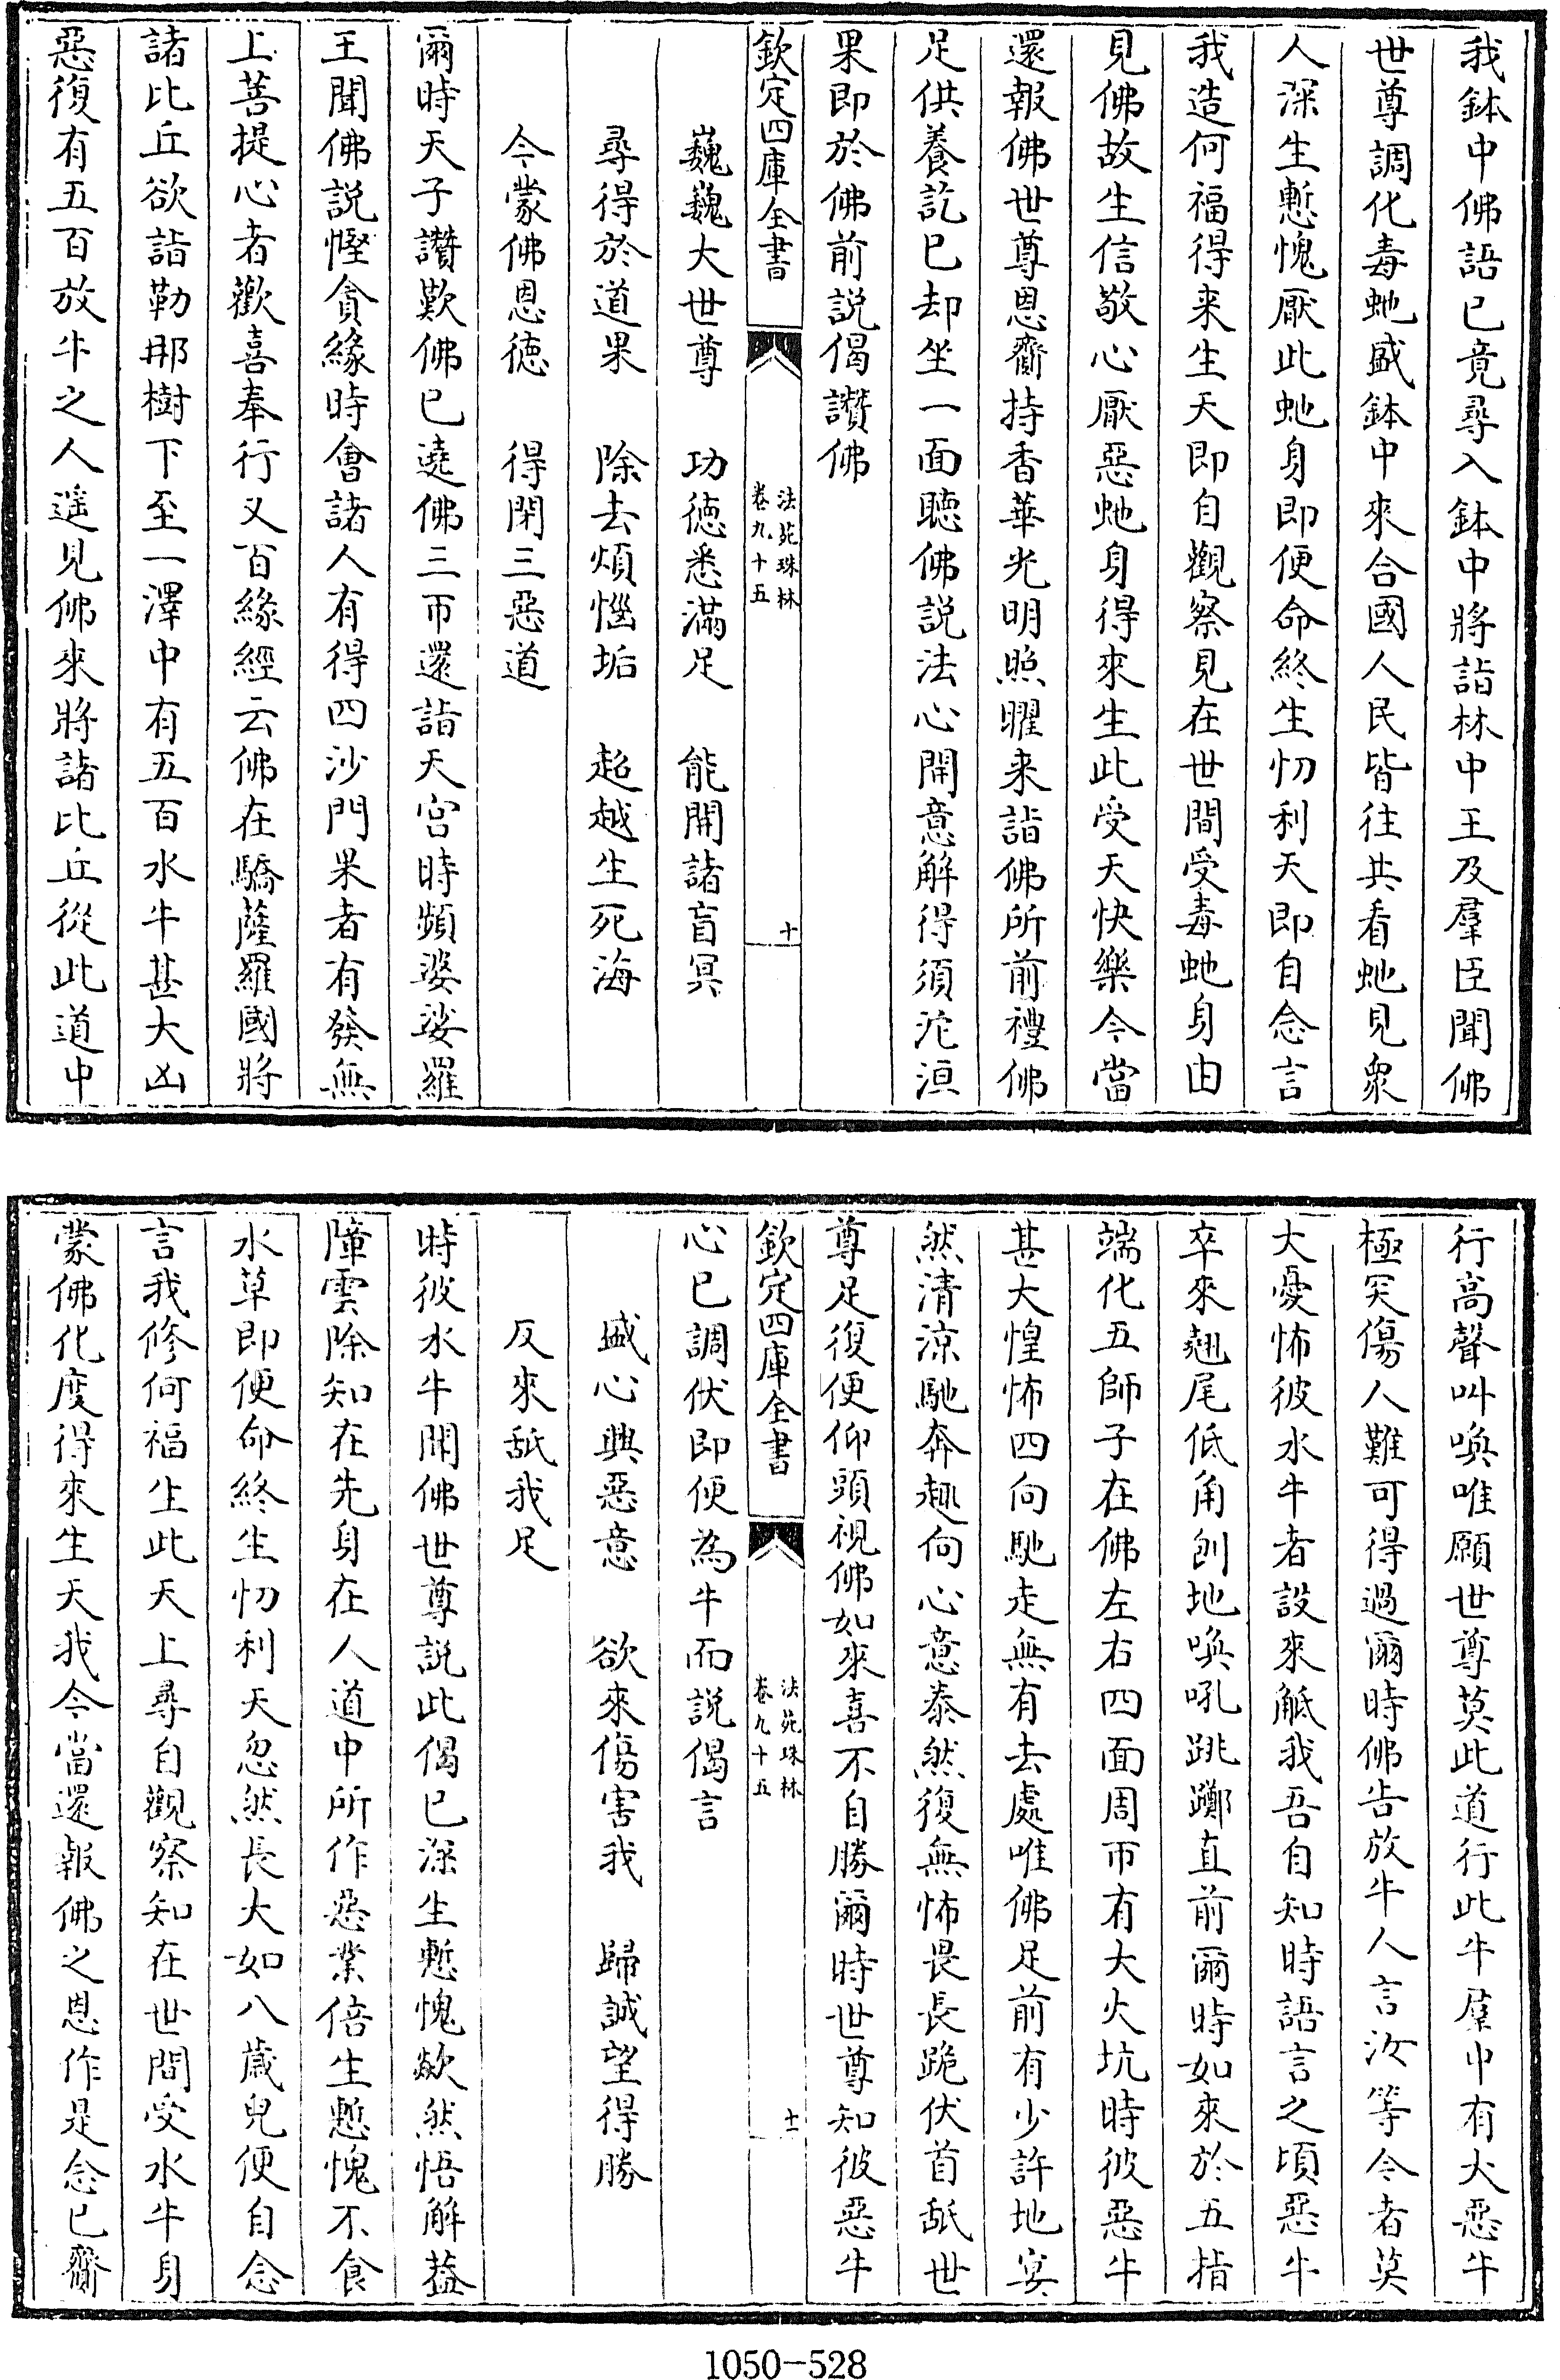 我鉢中佛語已竟尋入鉢中將詣林中王及羣臣聞佛
世尊調化毒虵盛鉢中來合國人民皆往共看虵見衆
人深生慙愧厭此虵身即便命終生忉利天即自念言
我造何福得来生天即自觀察見在世間受毒虵身由
見佛故生信敬心厭惡虵身得來生此受天快樂今當
還報佛世尊恩齎持香華光明照曜来詣佛所前禮佛
足供養訖已却坐一面聽佛説法心開意解得須沱洹
果即於佛前説偈讚佛
欽定四庫全書
法苑珠林
卷九十五
十
巍巍大世尊　功徳悉滿足　能開諸盲冥
尋得於道果　除去煩惱垢　超越生死海
今蒙佛恩徳　得閉三惡道
爾時天子讚歎佛已遶佛三帀還詣天宫時頻婆娑羅
王聞佛説慳貪緣時會諸人有得四沙門果者有發無
上菩提心者歡喜奉行又百緣經云佛在驕薩羅國將
諸比丘欲詣勒那樹下至一澤中有五百水牛甚大凶
惡復有五百放牛之人遥見佛來將諸比丘從此道中
行高聲叫喚唯願世尊莫此道行此牛羣中有大惡牛
極突傷人難可得過爾時佛告放牛人言汝等今者莫
大憂怖彼水牛者設來觝我吾自知時語言之頃惡牛
卒來翹尾低角刨地喚吼跳躑直前爾時如來於五指
端化五師子在佛左右四面周帀有大火坑時彼惡牛
甚大惶怖四向馳走無有去處唯佛足前有少許地宴
然清涼馳奔趣向心意泰然復無怖畏長跪伏首舐世
尊足復便仰頭視佛如來喜不自勝爾時世尊知彼惡牛
欽定四庫全書
法苑珠林
卷九十五
十一
心已調伏即便為牛而説偈言
盛心興惡意　欲來傷害我　歸誠望得勝
反來舐我足
時彼水牛聞佛世尊説此偈已深生慙愧歘然悟解葢
障雲除知在先身在人道中所作惡業倍生慙愧不食
水草即便命終生忉利天忽然長大如八歳兒便自念
言我修何福生此天上尋自觀察知在世間受水牛身
蒙佛化度得來生天我今當還報佛之恩作是念已齎
1050-528